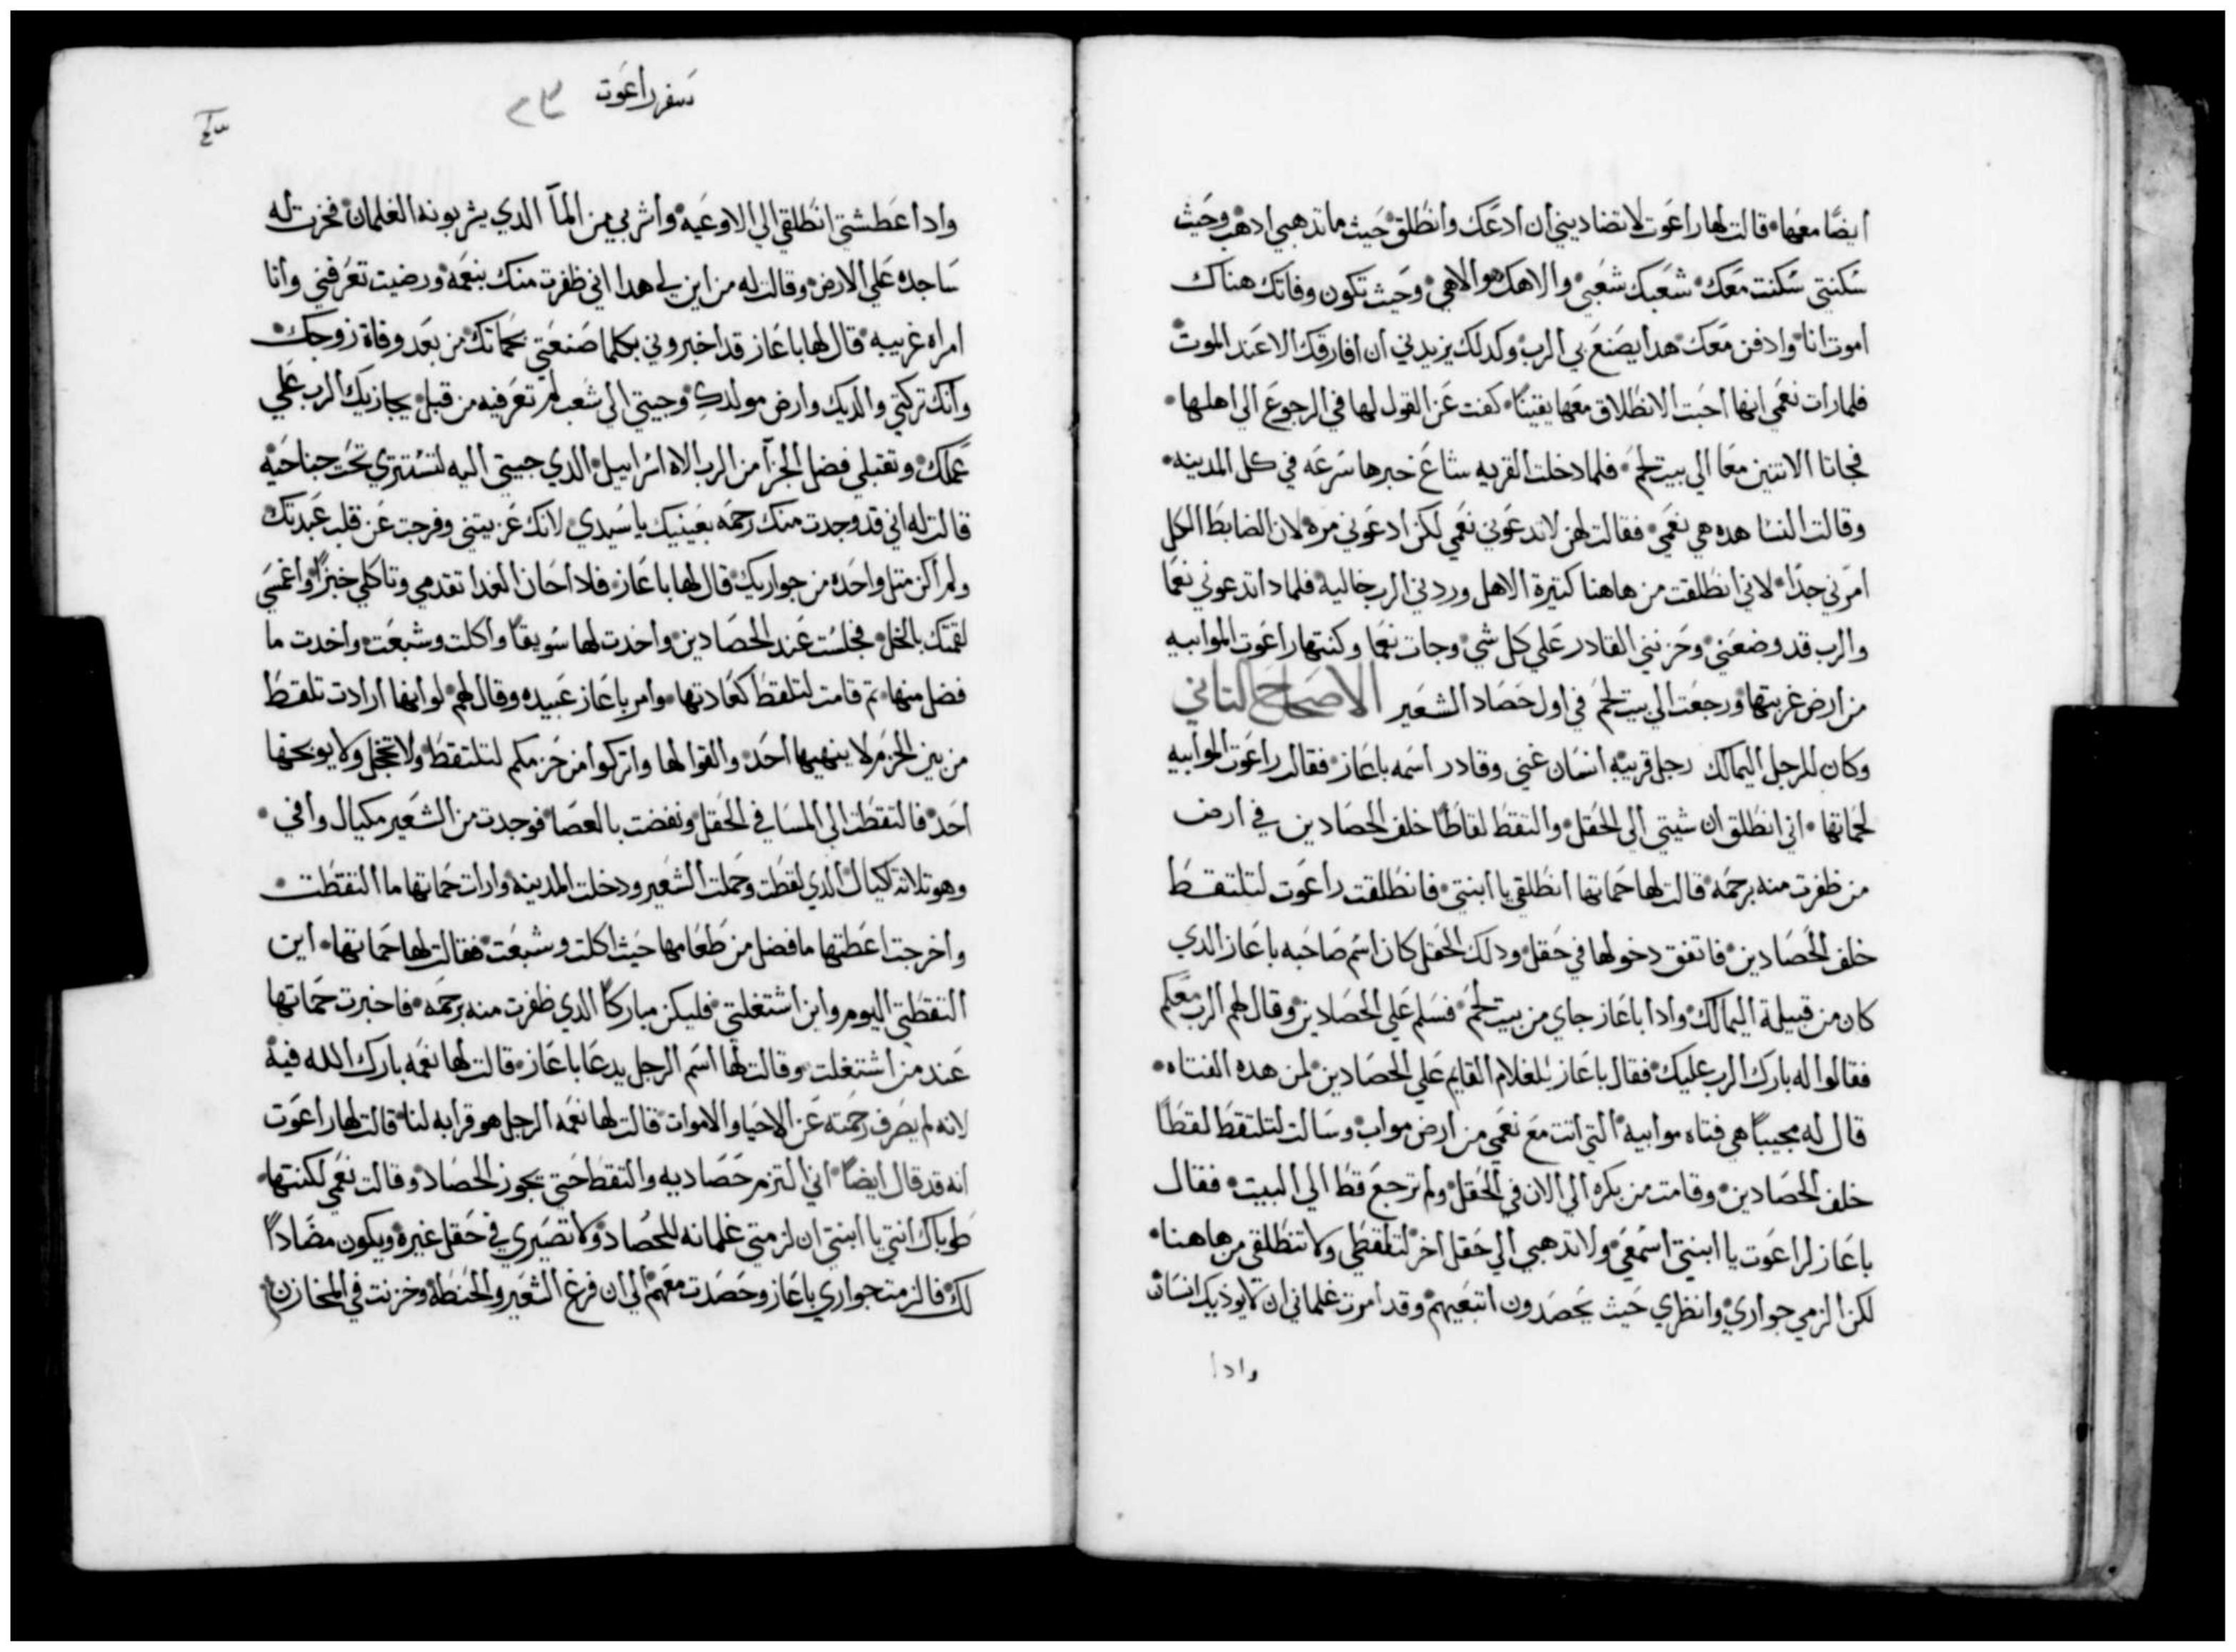 ايضًا معها قالت لها راعوت لا تضاديني أن ادعك وانطلق حيث ما تدهبي ادهب وحيث
سكنتي سكنت معك شعبك شعبي والاهك هو الاهي وحيث تكون وفاتك هناك
اموت انا وادفن معك هدا يصنع بي الرب وكدلك يزيدني أن افارقك الا عند الموت
فلما رات نعمي انها احبت الانطلاق معها يقينًا كفت عن القول لها في الرجوع الي اهلها
فجاتا الاتنين معا الي بيت لحم فلما دخلت القريه شاع خبرها سرعه في كل المدينه
وقالت النسا هده هي نعمي فقالت لهن لا تدعوني نعمي لكن ادعوني مره لان الضابط الكل
امرني جدًا لاني انطلقت من هاهنا كتيرة الاهل وردني الرب خاليه فلمادا تدعوني نعما
والرب قد وضعني وحزنني القادر علي كل شي وجات نعما وكنتها راعوت الموابيه
من ارض غربتها ورجعت الي بيت لحم في اول حصاد الشعير الاصحاح التاني
وكان للرجل اليمالك رجل قريبه انسان غني وقادر اسمه باعاز فقالت راعوت الموابيه
لحماتها اني انطلق ان شيتي الي الحقل والتقط لقاطًا خلف الحصادين في ارض
من ظفرت منه برحمه قالت لها حماتها انطلقي يا ابنتي فانطلقت راعوت لتلتقط
خلف الحصادين فاتفق دخولها في حقل ودلك الحقل كان اسم صاحبه باعاز الدي
كان من قبيلة اليمالك وادا باعاز جاي من بيت لحم فسلم علي الحصادين وقال لهم الرب معكم
فقالوا له بارك الرب عليك فقال باعاز للغلام القايم علي الحصادين لمن هده الفتاه
قال له مجيبًا هي فتاه موابيه التي اتت مع نعمي من ارض مواب وسالت لتلتقط لقطًا
خلف الحصادين وقامت من بكره الي الان في الحقل ولم ترجع قط الي البيت فقال
باعاز لراعوت يا ابنتي اسمعي ولا تدهبي الي حقل اخر لتلتقطي ولا تنطلقي من هاهنا
لكن الزمي جواري وانظري حيث يحصدون اتبعيهم وقد اموت غلماني ان لا يوديك انسان
وادا
سفر راعوت
وادا عطشتي انطلقي الي الاوعيه واشربي من المآ الدي يشربونه الغلمان فخرت له
ساجده علي الارض وقالت له من اين لي هدا اني ظفرت منك بنعمه ورضيت تعرفني وأنا
امراه غريبه قال لها باعاز قد اخبروني بكلما صنعتي بحماتك من بعد وفاة زوجك
وأنك تركتي والديك وارض مولدك وجيتي الي شعب لم تعرفيه من قبل يجازيك الرب علي
عملك وتقبلي فضل الجزآ من الرب الاه اسراييل الدي جيتي اليه لتستتري تحت جناحيه
قالت له اني قد وجدت منك رحمه بعينيك يا سيدي لانك عزيتني وفرجت عن قلب عبدتك
ولم أكن متل واحده من جواريك قال لها باعاز فادا حان الغدا تقدمي وتاكلي خبزًا واغمسي
لقمتك بالخل فجلست عند الحصادين واخدت لها سويقًا وأكلت وشبعت واخدت ما
فضل منها تم قامت لتلقط كعادتها وامر باعاز عبيده وقال لهم لو انها ارادت تلقط
من بين الحزم لا ينهيها احد والقوا لها واتركوا من حزمكم لتلتقط ولا تخجل ولا يوبخها
احد فالتقطت الي المسا في الحقل ونفضت بالعصا فوجدت من الشعير مكيال وافي
وهو تلاتة اكيال الدي لقطت وحملت الشعير ودخلت المدينه وارات حماتها ما التقطت
وأخرجت اعطتها ما فضل من طعامها حيث اكلت وشبعت فقالت لها حماتها اين
التقطتي اليوم واين اشتغلتي فليكن مباركًا الدي ظفرت منه برحمه فاخبرت حماتها
عند من اشتغلت وقالت لها اسم الرجل يدعا باعاز قالت لها نعمه بارك الله فيه
لانه لم يصرف رحمته عن الاحيا والاموات قالت لها نعمه الرجل هو قرابه لنا قالت لها راعوت
انه قد قال ايضًا اني التزم حصاديه والتقط حتي يجوز الحصاد وقالت نعمي لكنتها
طوباك انتي يا ابنتي ان لزمتي غلمانه للحصاد ولا تصيري في حقل غيره ويكون مضادًا
لك فالزمت جواري باعاز وحصدت معهم الي ان فرغ الشعير والحنطه وخزنت في المخازن